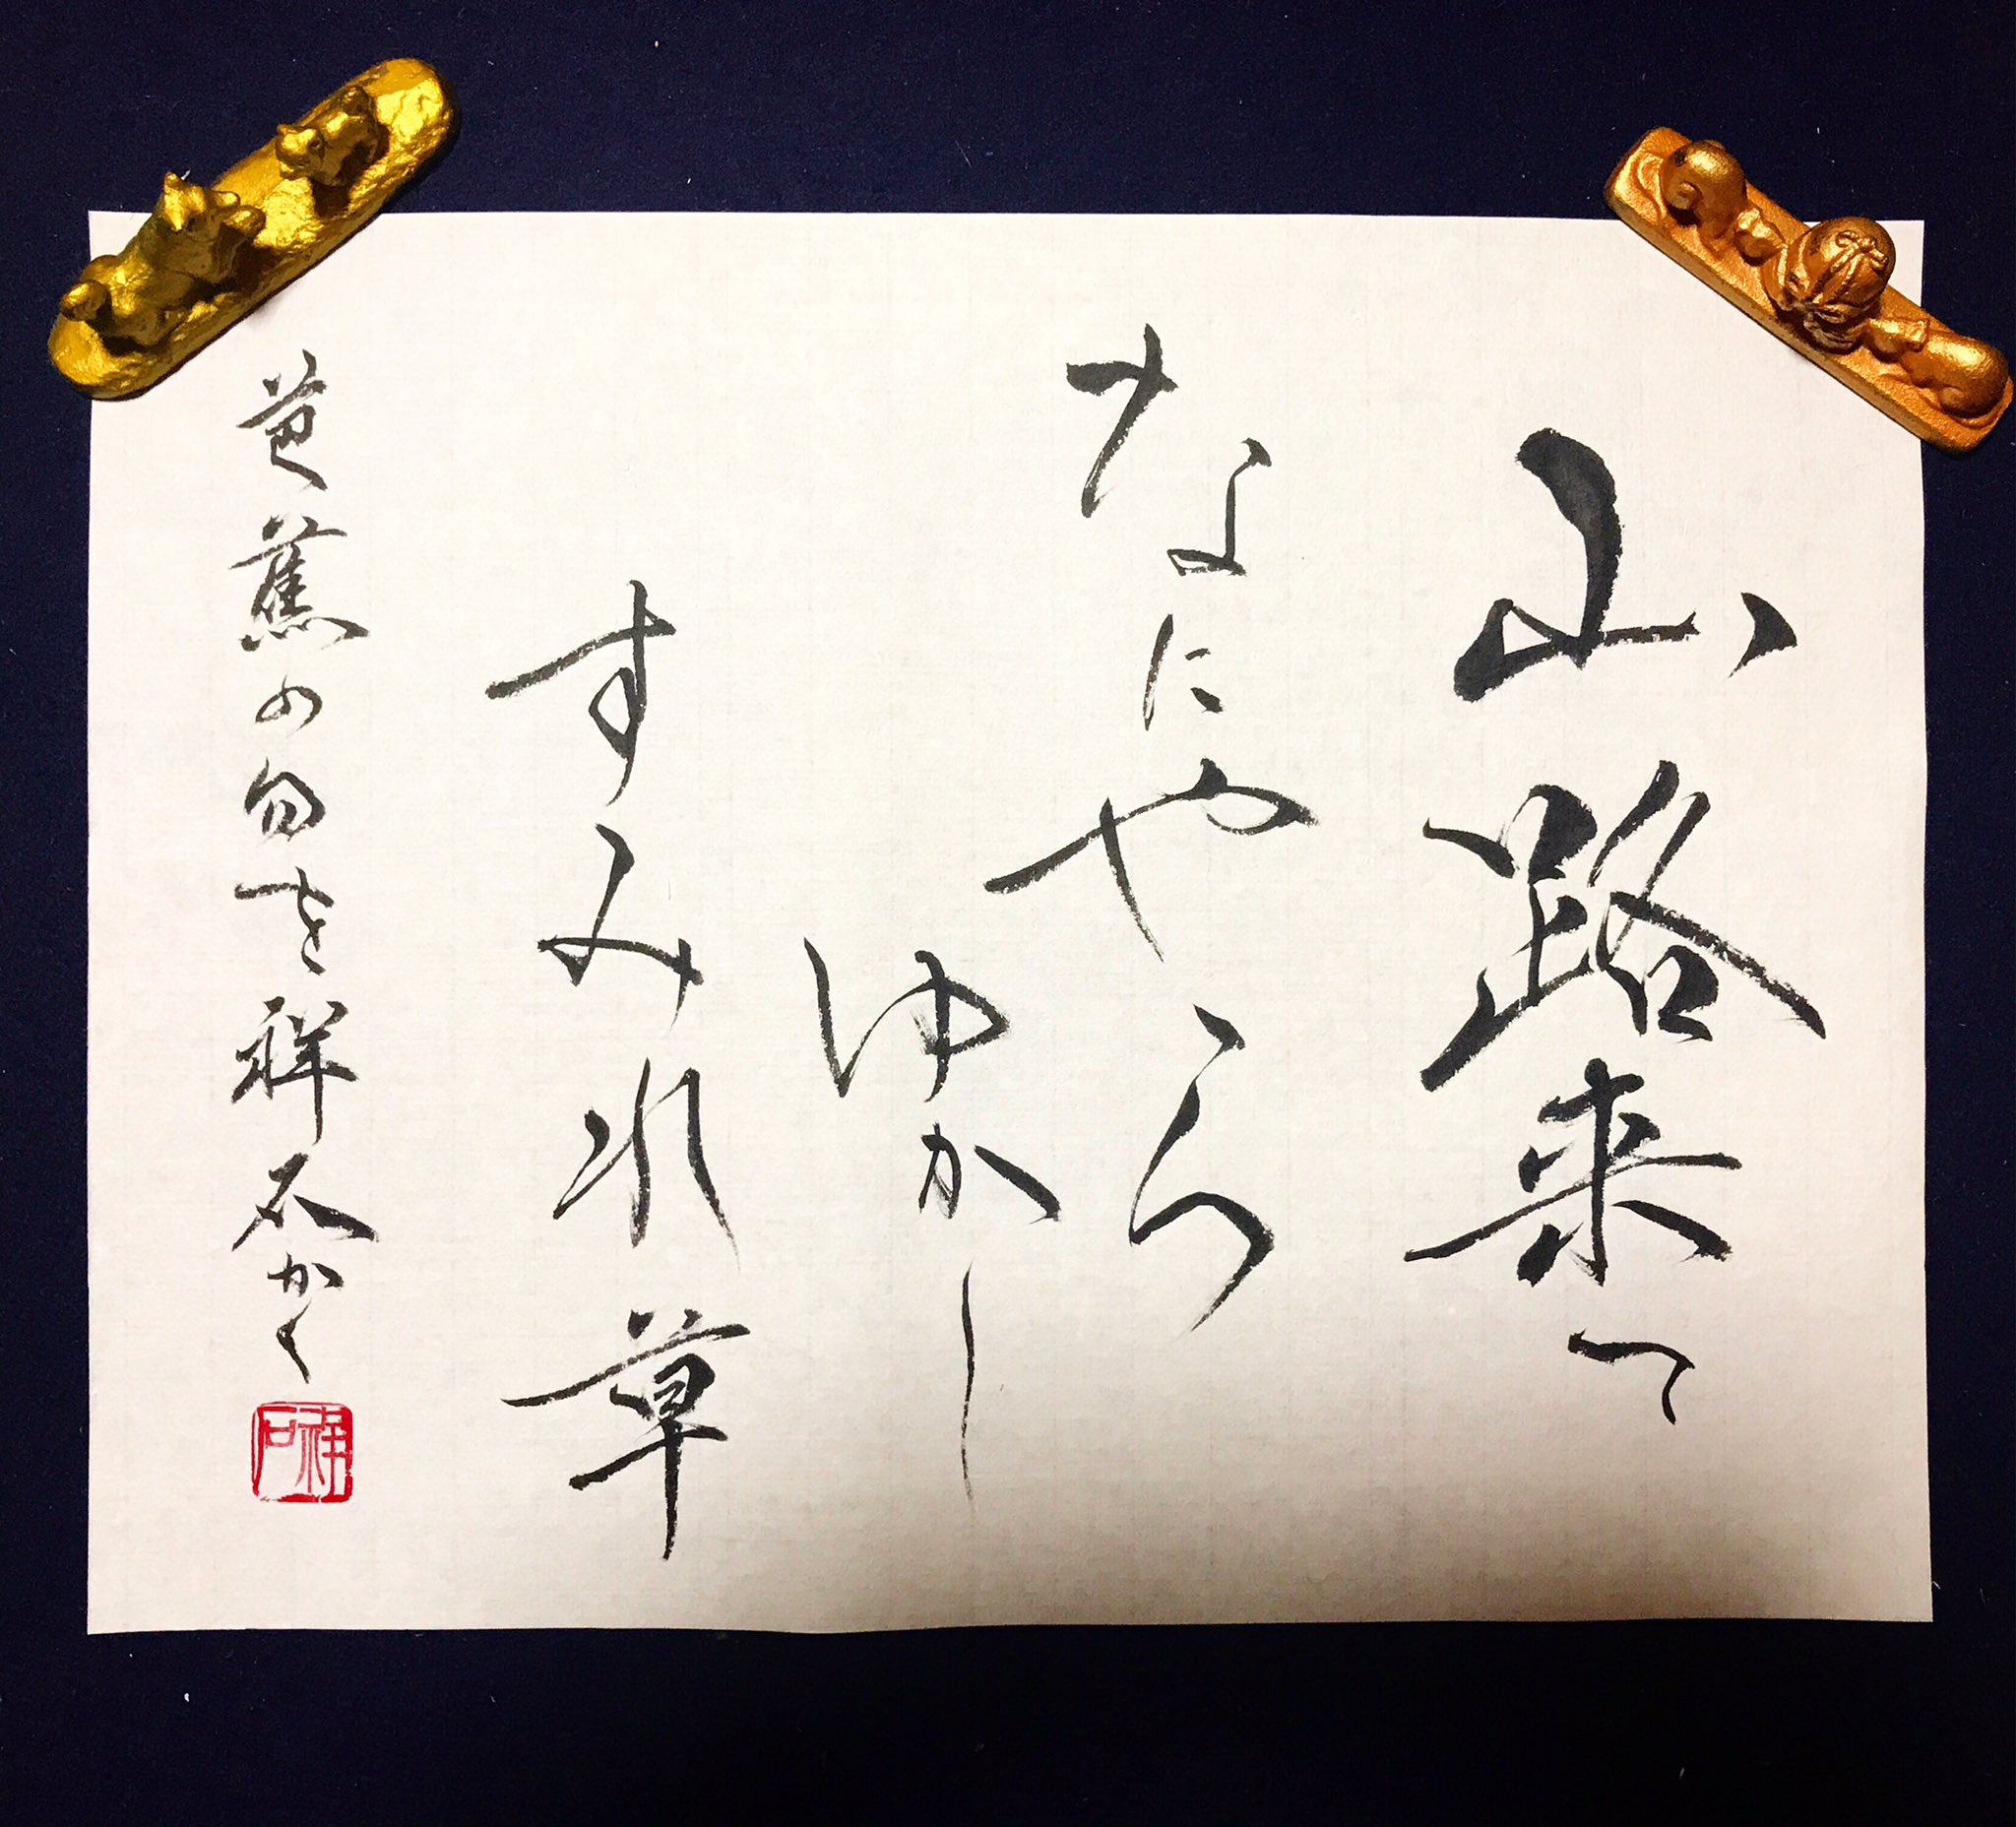 山路来て
なにやら
ゆかし
すみれ草
芭蕉の句を祥石かく
祥石